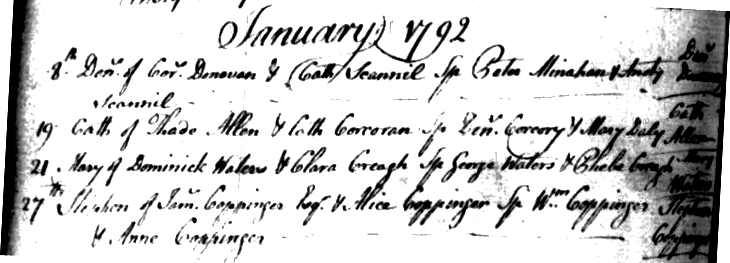 January 1792
8th Denˢ. of Corˢ. Donovan & Cath Scannil Sp Peter Minahan & Andy
Scannil
19 Cath of Thade Allen & Cath Corcoran Sp Corcory & Mary Daly
21 Mary of Dominick Waters & Clara Creagh Sp George Waters & Phebe Creagh
27th Stephen of Jamˢ. Coppinger Esqʳ. & Alice Coppinger Sp Wᵐ Coppinger
& Anne Coppinger
Cath
Allen
Mary
Waters
Stephen
Coppinger